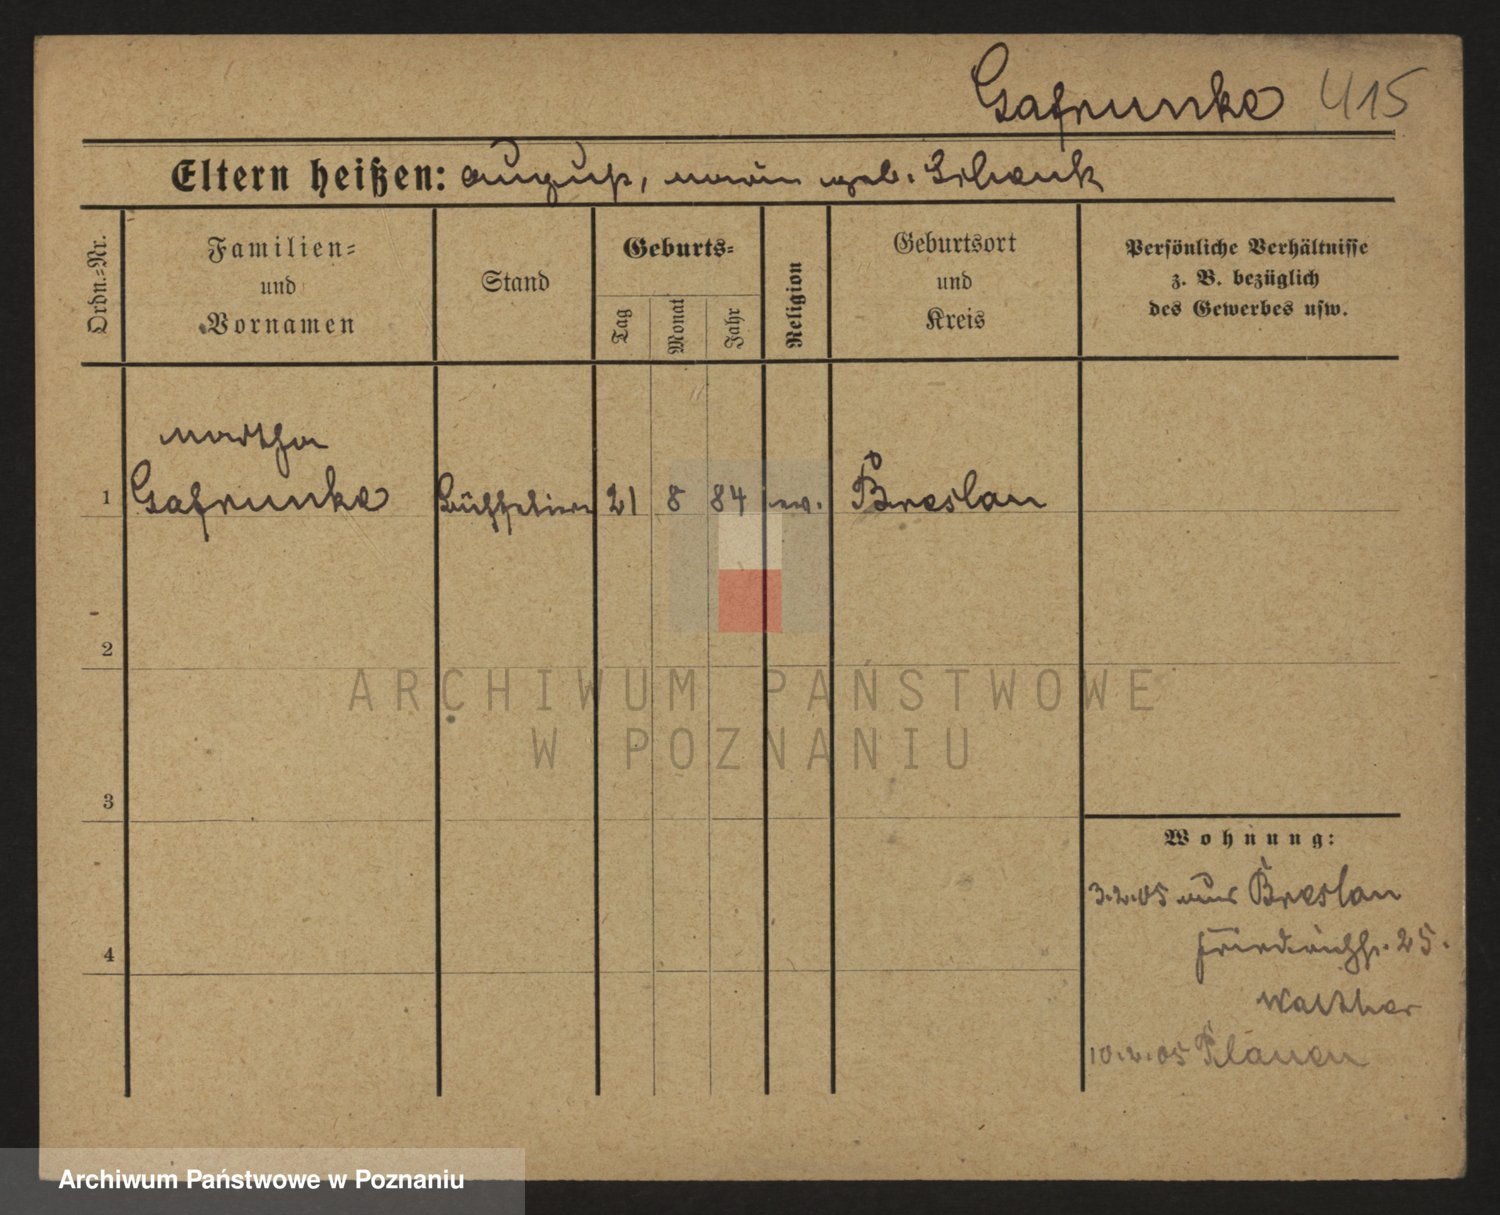 Gafrunke 415
Eltern heißen: August, Marie geb. Schenk
Ordn.=Nr.
Familien=
und
Vornamen
Stand
Geburts=
Tag
Monat
Jahr
Religion
Geburtsort
und
Kreis
Persönliche Verhältnisse
z. B. bezüglich
des Gewerbes usw.
Martha
1 Gafrunke Büffetiere 21 8 84 ev. Breslau
2
3
4
Wohnung:
3.2.05 aus Breslau
Friedrichstr. 25.
Walther
10.2.05 Plauen
ARCHIWUM PAŃSTWOWE
W POZNANIU
Archiwum Państwowe w Poznaniu